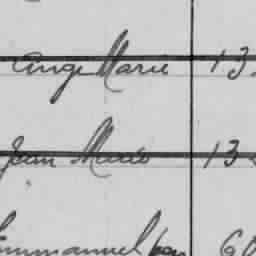 Ange Marie 13
Jean Marie 13
Emmanuel 60